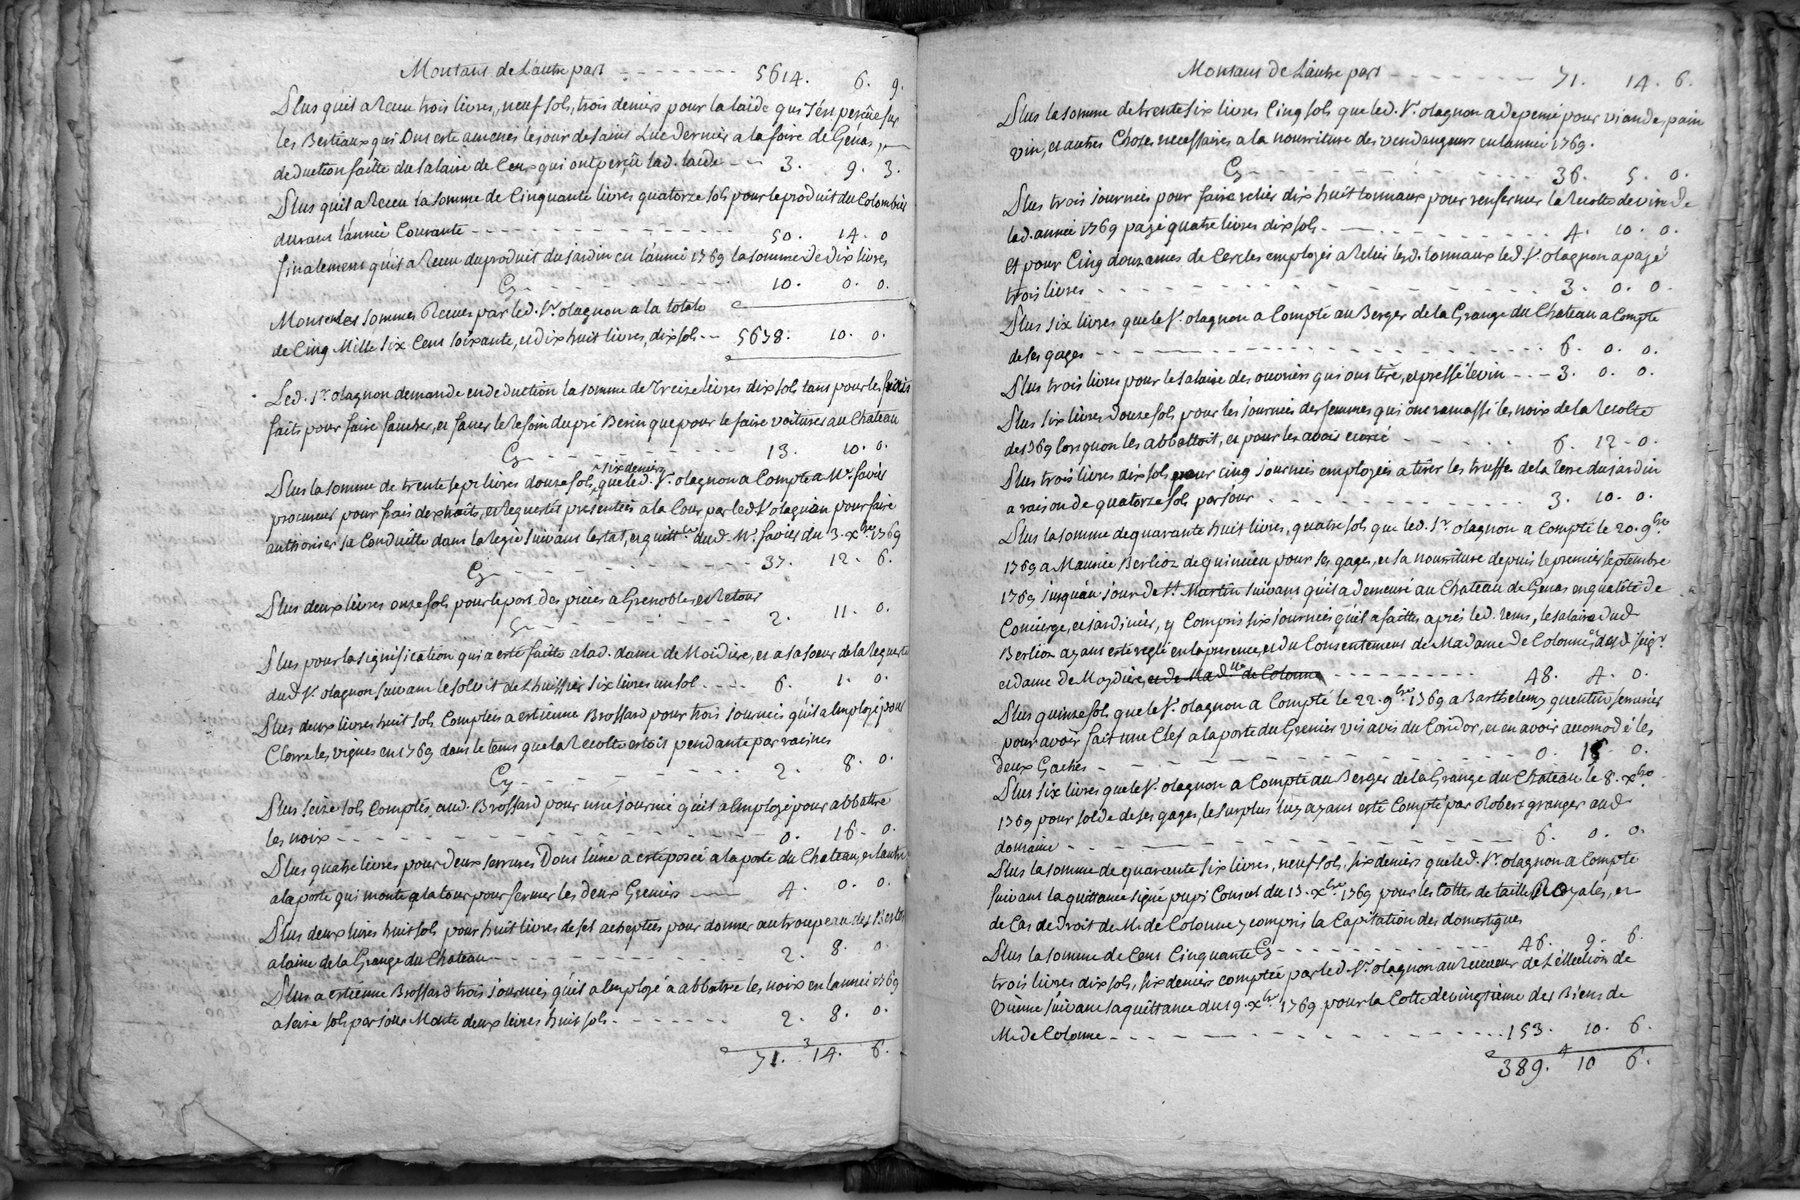 Montant de Lautre part - - - - - - - - 5614. 6. 9.
Plus quil a Receu trois livres, neuf sols, trois deniers pour la laide qui s'en perçüe sur
les Bestiaux qui Ont este amenés le jour de saint Luc dernier a la foire de Genas,
deduction faitte du salaire de Ceux qui ont perçû lad. laide - - 3. 9. 3.
Plus quil a Receu la somme de Cinquante livres quatorze sols pour le produit du Colombier
durant l'année Courante - - - - - - - - - - 50. 14. 0
finalement quil a Receu du produit du jardin en l'année 1769 la somme de dix livres
Cy - - - - - - - - 10. 0. 0.
Montent les sommes Receues par led. Sr. olagnon a la totale
de Cinq Mille six Cent soixante, et dix huit livres, dix sols - - 5678. 10. 0.
Led. Sr. olagnon demande en deduction la somme de Treize livres dix sols tant pour les fraits
faits pour faire faucher, et faner le Refoin du pré Berin que pour le faire voiturer au Chateau
Cy - - - - - - - - 13. 10. 0.
Plus la somme de trente sept livres douze sols, six deniers que led. Sr. olagnon a Compté a Mr. favier
procureur pour frais dextraits, et Requetes presentées a la Cour par led Sr olagnon pour faire
authoriser sa Conduitte dans la Regie suivant l'estat, et quittce. dud. Mr. favier du 3. xbre 1769
Cy - - - - - - - - 37. 12. 6.
Plus deux livres onze sols pour le port des pieces a Grenobles, et Retour
Cy - - - - - - - - 2. 11. 0.
Plus pour la signification qui a esté faitte a lad. dame de Moidiere, et a sa soeur de la Requette
dud Sr. olagnon suivant le solvit de Lhuissier six livres un sol - - - 6. 1. 0.
Plus deux livres huit sols Comptés a estienne Brossard pour trois journées quil a Employé pour
Clorre les vignes en 1769 dans le tems que la Recolte estoit pendante par racines
Cy - - - - - - - - 2. 8. 0.
Plus seize sols Comptés aud. Brossard pour une journée quil a Employé pour abbattre
les noix - - - - - - - - 0. 16. 0.
Plus quatre livres pour deux serrures Dont l'une a esté posée a la porte du Chateau, et lautre
a la porte qui monte a la tour pour fermer les deux Greniers - - 4. 0. 0.
Plus deux livres huit sols pour huit livres de sel acheptées pour donner au troupeau des Bestes
a laine de la Grange du Chateau - - - - - - 2. 8. 0.
Plus a estienne Brossard trois journées quil a Employé a abbatre les noix en l'année 1769
a seize sols par jour Monte deux livres huit sols - - - - - 2. 8. 0.
71. 3 14. 6.
Montant de Lautre part - - - - - - 71. 14. 6.
Plus la somme de trente six livres Cinq sols que led. Sr. olagnon a depensé pour viande, pain
vin, et autres Choses necessaires a la nourriture des vendangeurs en l'année 1769.
Cy - - - - - - - - 36. 5. 0.
Plus trois journées pour faire relier dix huit tonneaux pour renfermer la Recolte de vin de
lad. année 1769 payé quatre livres dix sols - - - - - - 4. 10. 0.
Et pour Cinq douzaines de Cercles employés a Relier lesd. tonneaux led. Sr. olagnon a payé
trois livres - - - - - - - - 3. 0. 0.
Plus six livres que le Sr. olagnon a Compté au Berger de la Grange du Chateau a Compte
de ses gages - - - - - - - - 6. 0. 0.
Plus trois livres pour le salaire des ouvriers qui ont tiré, et pressé le vin - - - 3. 0. 0.
Plus six livres douze sols pour les journées des femmes qui ont ramassé les noix de la Recolte
de 1769 lorsquon les abbattoit, et pour les avoir écuré - - - - - 6. 12. 0.
Plus trois livres dix sols pour cinq journées employées a tirer les truffes de la Terre du jardin
a raison de quatorze sols par jour - - - - - - - 3. 10. 0.
Plus la somme de quarante huit livres, quatre sols que led. Sr. olagnon a Compté le 20. 9bre
1769 a Maurice Berlioz de quincieu pour ses gages, et sa nourriture depuis le premier septembre
1769 jusquau jour de St. Martin suivant quil a demeuré au Chateau de Genas en qualité de
Concierge, et jardinier, y Compris six journées quil a faittes après led. tems, le salaire dud
Berlioz ayant esté reglé en la presence, et du Consentement de Madame de Colonne, desd. seigr
et dame de Moydiere, et de Madlle de Colonne - - - - - - 48. 4. 0.
Plus quinze sols que le Sr. olagnon a Compté le 22. 9bre 1769 a Barthelemy quentin serrurier
pour avoir fait une Clef a la porte du Grenier vis avis du Coridor, et en avoir acomodé les
deux Gaches - - - - - - - - 0. 15. 0.
Plus six livres que le Sr. olagnon a Compté au Berger de la Grange du Chateau le 8. xbre
1769 pour solde de ses gages, le surplus luy ayant esté Compté par Robert granger aud
domaine - - - - - - - - 6. 0. 0.
Plus la somme de quarente six livres, neuf sols, six deniers que led. Sr. olagnon a Compté
suivant la quittance signé pupt Consul du 13. xbre. 1769 pour les Cottes de taille Royales, et
de Cas de droit de Mr. de Colonne y compris la Capitation des domestiques
Cy - - - - - - - - 46. 9. 6.
Plus la somme de Cent Cinquante
trois livres dix sols, six deniers comptée par led. Sr. olagnon au Receveur de L'éllection de
Vienne suivant sa quittance du 19. xbre. 1769 pour la Cotte de vingtieme des Biens de
Mr. de Colonne - - - - - - - - 153. 10. 6.
389. 4 10 6.